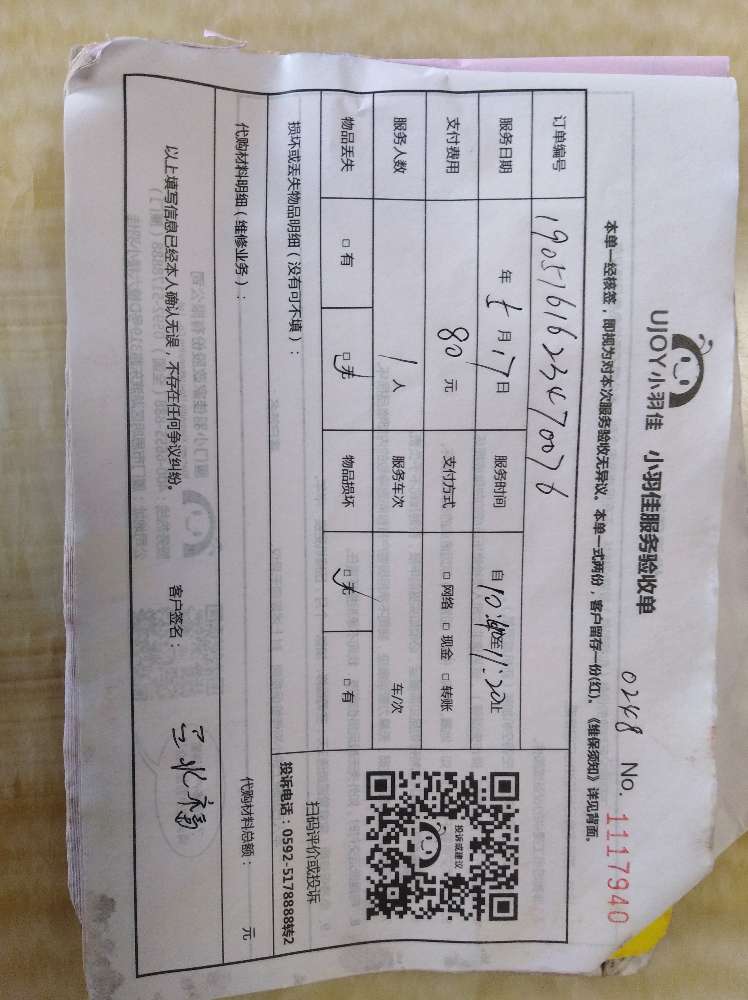 UJOY小羽佳 小羽佳服务验收单
0248 No. 1117940
本单一经核签，即视为对本次服务验收无异议。本单一式两份，客户留存一份(红)。《维保须知》详见背面。
订单编号 1905161623470076
服务日期 年 5 月 17 日 服务时间 自 10: 至 11:20 止
支付费用 80 元 支付方式 □ 网络 □ 现金 □ 转账
服务人数 1 人 服务车次 车/次
物品丢失 □ 有 □ 无 物品损坏 □ 无 □ 有
投诉或建议
扫码评价或投诉
投诉电话：0592-5178888转2
损坏或丢失物品明细（没有可不填）：
代购材料明细（维修业务）： 代购材料总额： 元
以上填写信息已经本人确认无误，不存在任何争议纠纷。 客户签名：